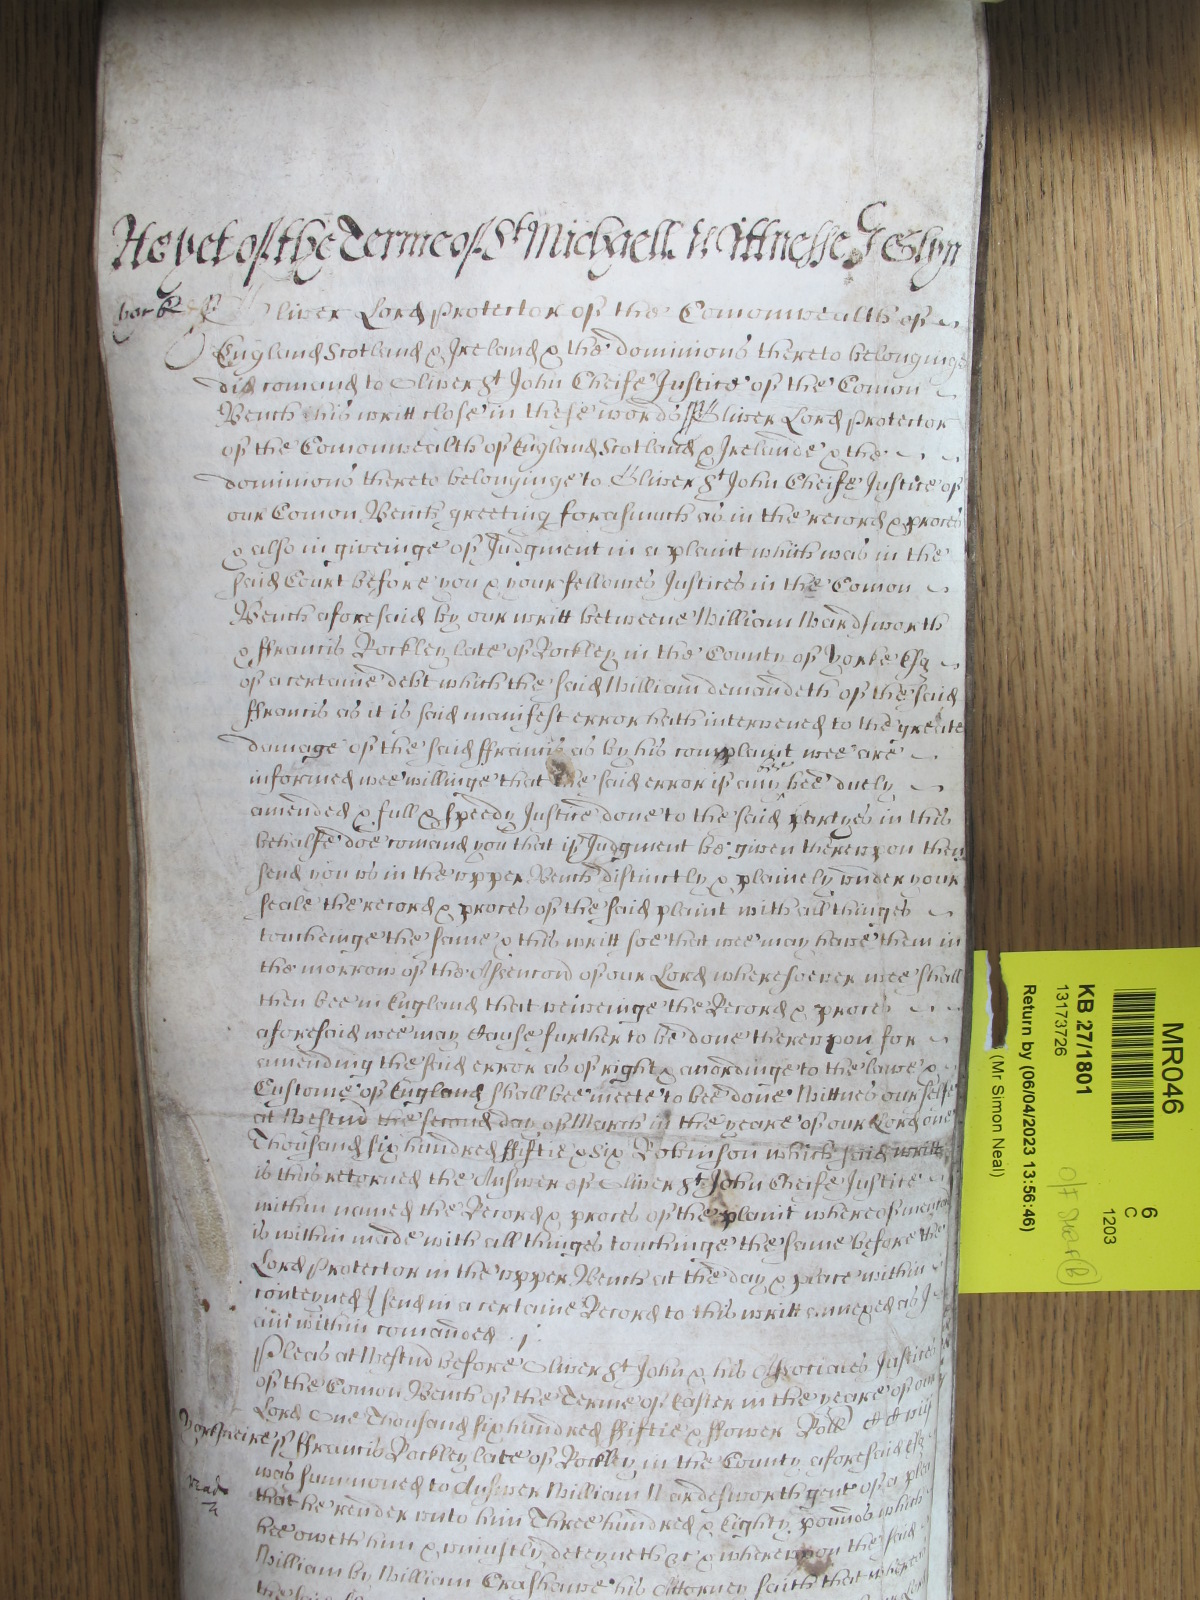 As yet of the Terme of St Michaell Wittnesse Joslyn
York ss Oliver Lord Protector of the Comonwealth of
England Scotland & Ireland & the dominions thereto belonginge
did comand to Oliver St John Cheife Justice of the Comon
Bench his writt close in these words ss Oliver Lord Protector
of the Comonwealth of England Scotland & Irelande & the
dominions thereto belonginge to Oliver St John Cheife Justice of
our Comon Bench greeting forasmuch as in the record & proces
& also in giveinge of Judgment in a plaint which was in the
said Court before you & your fellowes Justices in the Comon
Bench aforesaid by our writt betweene William Wardsworth
& ffrancis Rockley late of Rockley in the County of Yorke Esq
of a certaine debt which the said William demandeth of the said
ffrancis as it is said manifest error hath intervened to the greate
damage of the said ffrancis as by his complaint wee are
informed wee willinge that the said error if any bee duely
amended & full & speedy Justice done to the said partyes in this
behalfe doe comand you that if Judgment be given thereupon then
send you us in the upper Bench distinctly & plainely under your
seale the record & proces of the said plaint with all thinges
toucheinge the same & this writt soe that wee may have them in
the morrow of the Ascencion of our Lord wheresoever wee shall
then bee in England that veiweinge the Record & proces
aforesaid wee may Cause further to be done thereupon for
amending the said error as of right & accordinge to the lawe &
Custome of England shall bee meete to bee done Wittnes ourselfe
at Westmr the second day of March in the yeare of our Lord one
Thousand six hundred ffiftie & six Robinson which said writt
is thus retorned the Answer of Oliver St John Cheife Justice
within named the Record & proces of the plaint whereof mencon
is within made with all thinges touchinge the same before the
Lord Protector in the upper Bench at the day & place within
conteyned I send in a certaine Record to this writt annexed as I
am within comanded
Pleas at Westmr before Oliver St John & his Associates Justices
of the Comon Bench of the Terme of Easter in the yeare of our
Lord One Thousand six hundred ffiftie & ffower Roll
Yorkshire ss ffrancis Rockley late of Rockley in the County aforesaid Esq
was summoned to Answer William Wardesworth gent of a plea
that he render unto him Three hundred & Eighty pounds which
hee oweth him & uniustly deteyneth &c & whereupon the said
William by William Crashawe his Attorney saith that whereas
the said
MR046
KB 27/1801
13173726
Return by (06/04/2023 13:56:46)
(Mr Simon Neal)
6
C
1203